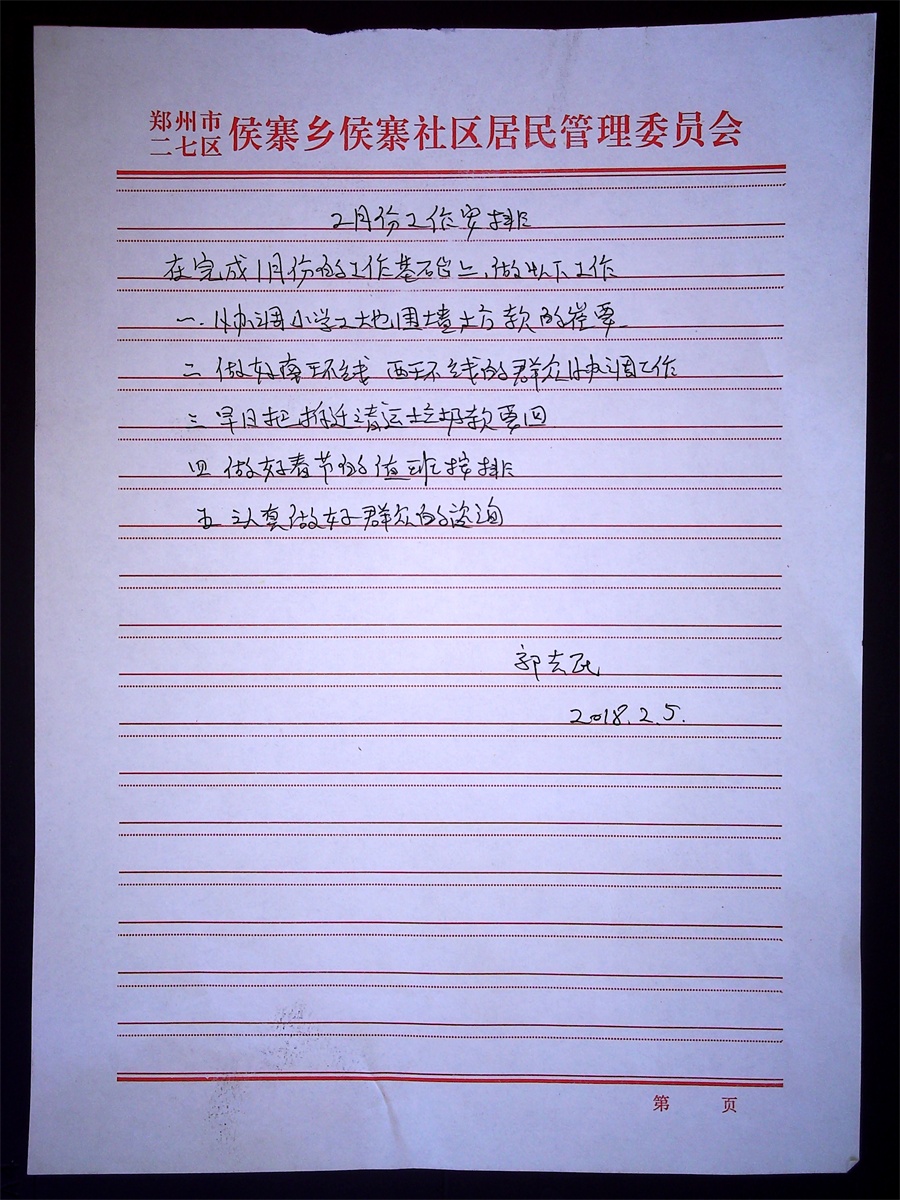 郑州市
二七区 侯寨乡侯寨社区居民管理委员会
2月份工作安排
在完成1月份的工作基础上,做以下工作
一.协调小学工地围墙土方款的催要
二 做好南环线 西环线的群众协调工作
三 早日把拆迁清运垃圾款要回
四 做好春节的值班按排
五 认真做好群众的咨询
郭
2018.2.5.
第 页